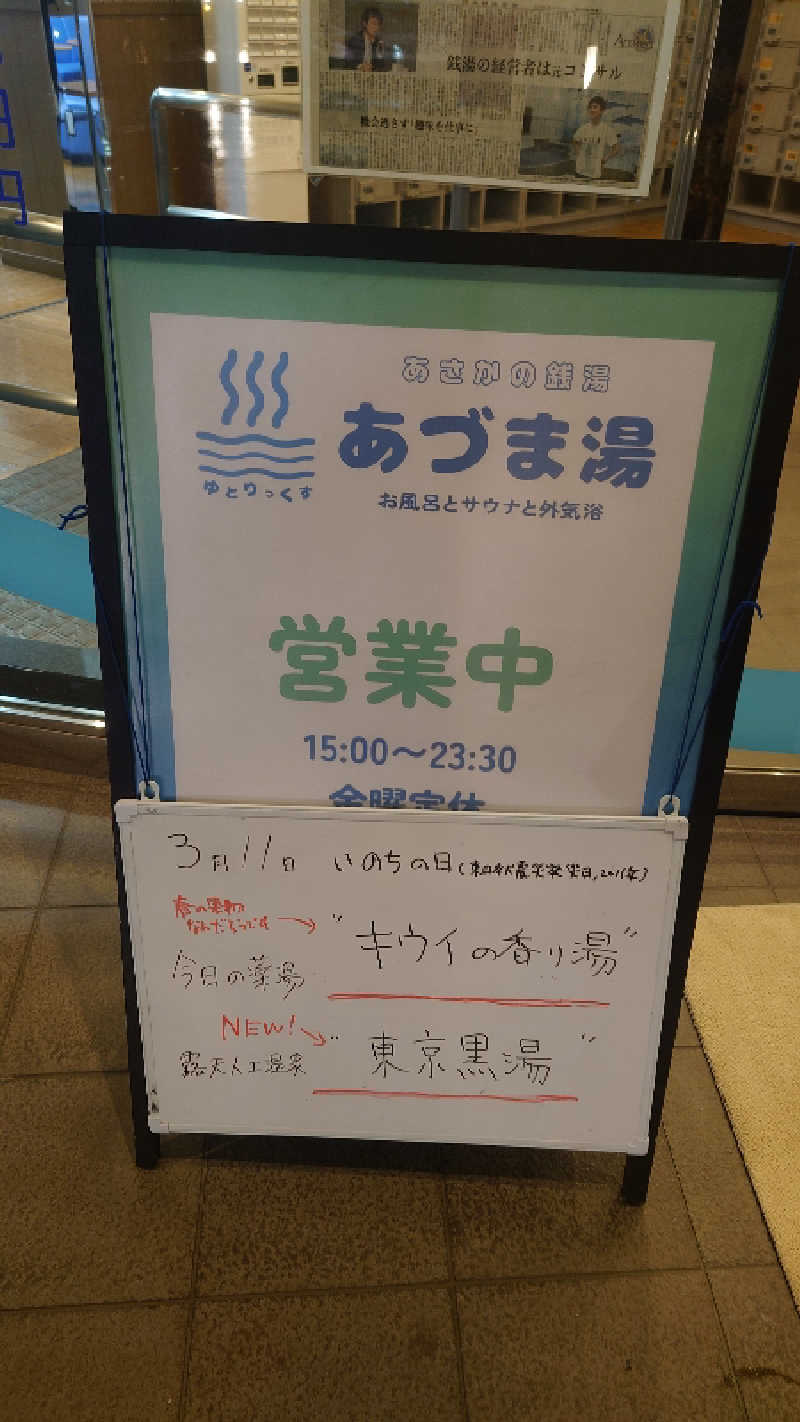 銭湯の経営者は元コンサル
機会逃さず「趣味を仕事に」
円
あさかの銭湯
あづま湯
ゆとりっくす
お風呂とサウナと外気浴
営業中
15:00〜23:30
金曜定休
3月11日 いのちの日(東日本大震災発災日,2011年)
春の果物
なんだそうです
"キウイの香り湯"
今日の薬湯
NEW!
"東京黒湯"
露天人工温泉